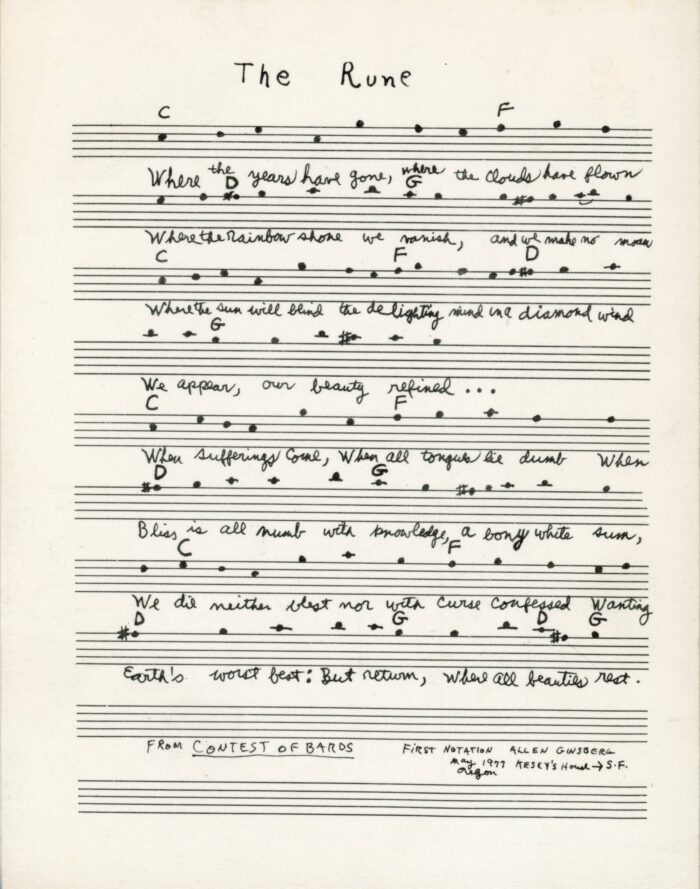 The Rune
C F
Where the years have gone, where the clouds have flown
D G
Where the rainbow shone we vanish, and we make no moan
C F D
Where the sun will blind the delighting mind in a diamond wind
G
We appear, our beauty refined ...
C F
When sufferings come, When all tongues lie dumb When
D G
Bliss is all numb with knowledge, a bony white sum,
C F
We die neither blest nor with curse confessed Wanting
D G D G
Earth's worst best: But return, where all beauties rest.
FROM CONTEST OF BARDS FIRST NOTATION ALLEN GINSBERG
May 1977 KESEY'S House → S.F.
Oregon